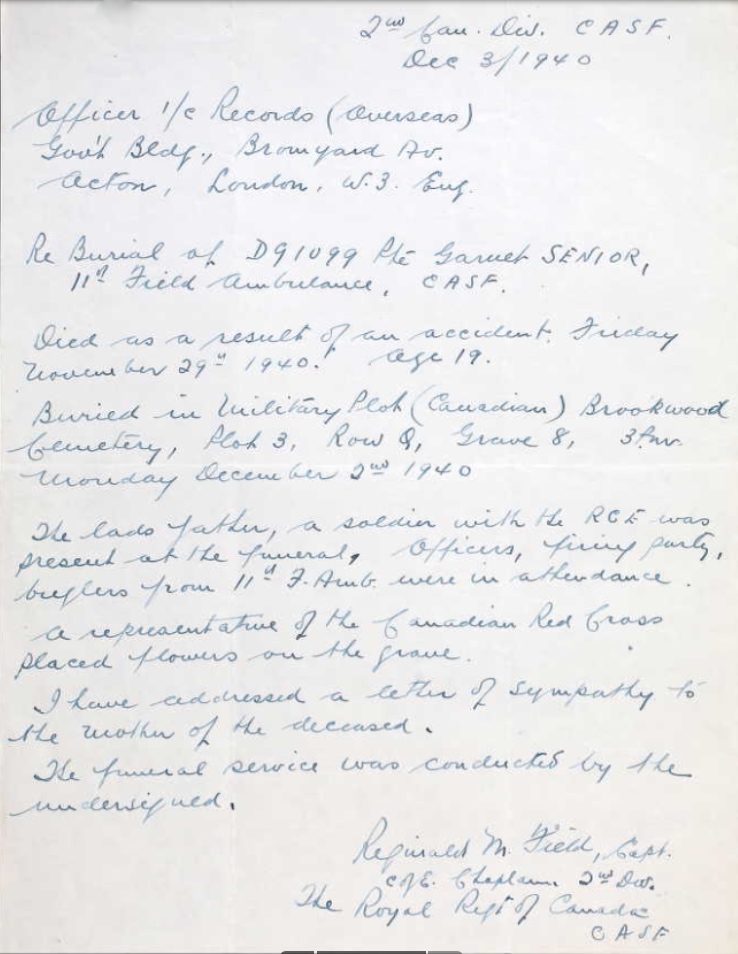 2nd Can. Div. CASF.
Dec 3/1940
Officer i/c Records (Overseas)
Gov't Bldg., Bromyard Av.
Acton, London, W.3. Eng.
Re Burial of D91099 Pte Garnet SENIOR,
11th Field Ambulance, CASF.
Died as a result of an accident, Friday
November 29th 1940. Age 19.
Buried in Military Plot (Canadian) Brookwood
Cemetery, Plot 3, Row Q, Grave 8,
Monday December 2nd 1940
The lads father, a soldier with the RCE was
present at the funeral, Officers, firing party,
buglers from 11th F. Amb. were in attendance.
A representative of the Canadian Red Cross
placed flowers on the grave.
I have addressed a letter of sympathy to
the mother of the deceased.
The funeral service was conducted by the
undersigned.
Reginald M. Field, Capt.
C of E. Chaplain. 2nd Div.
The Royal Regt of Canada
CASF